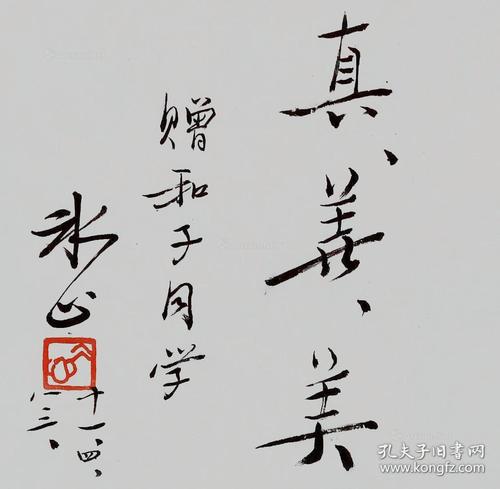 真、善、美
赠和子同学
冰心
十一、四、
八三、
孔夫子旧书网
www.kongfz.com